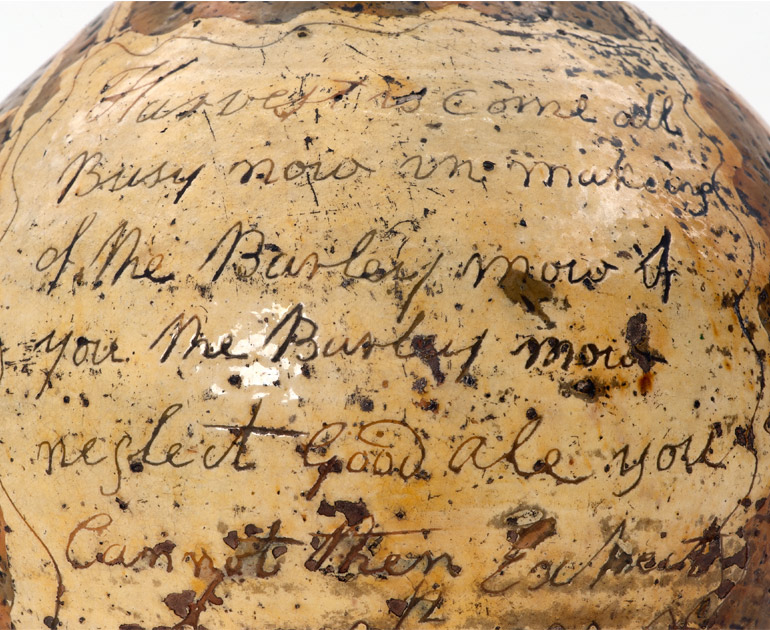 Harvest is come all
Busy now in makeing
of the Barley mow if
you the Barley mow
neglect Good ale you
Cannot then Exspect